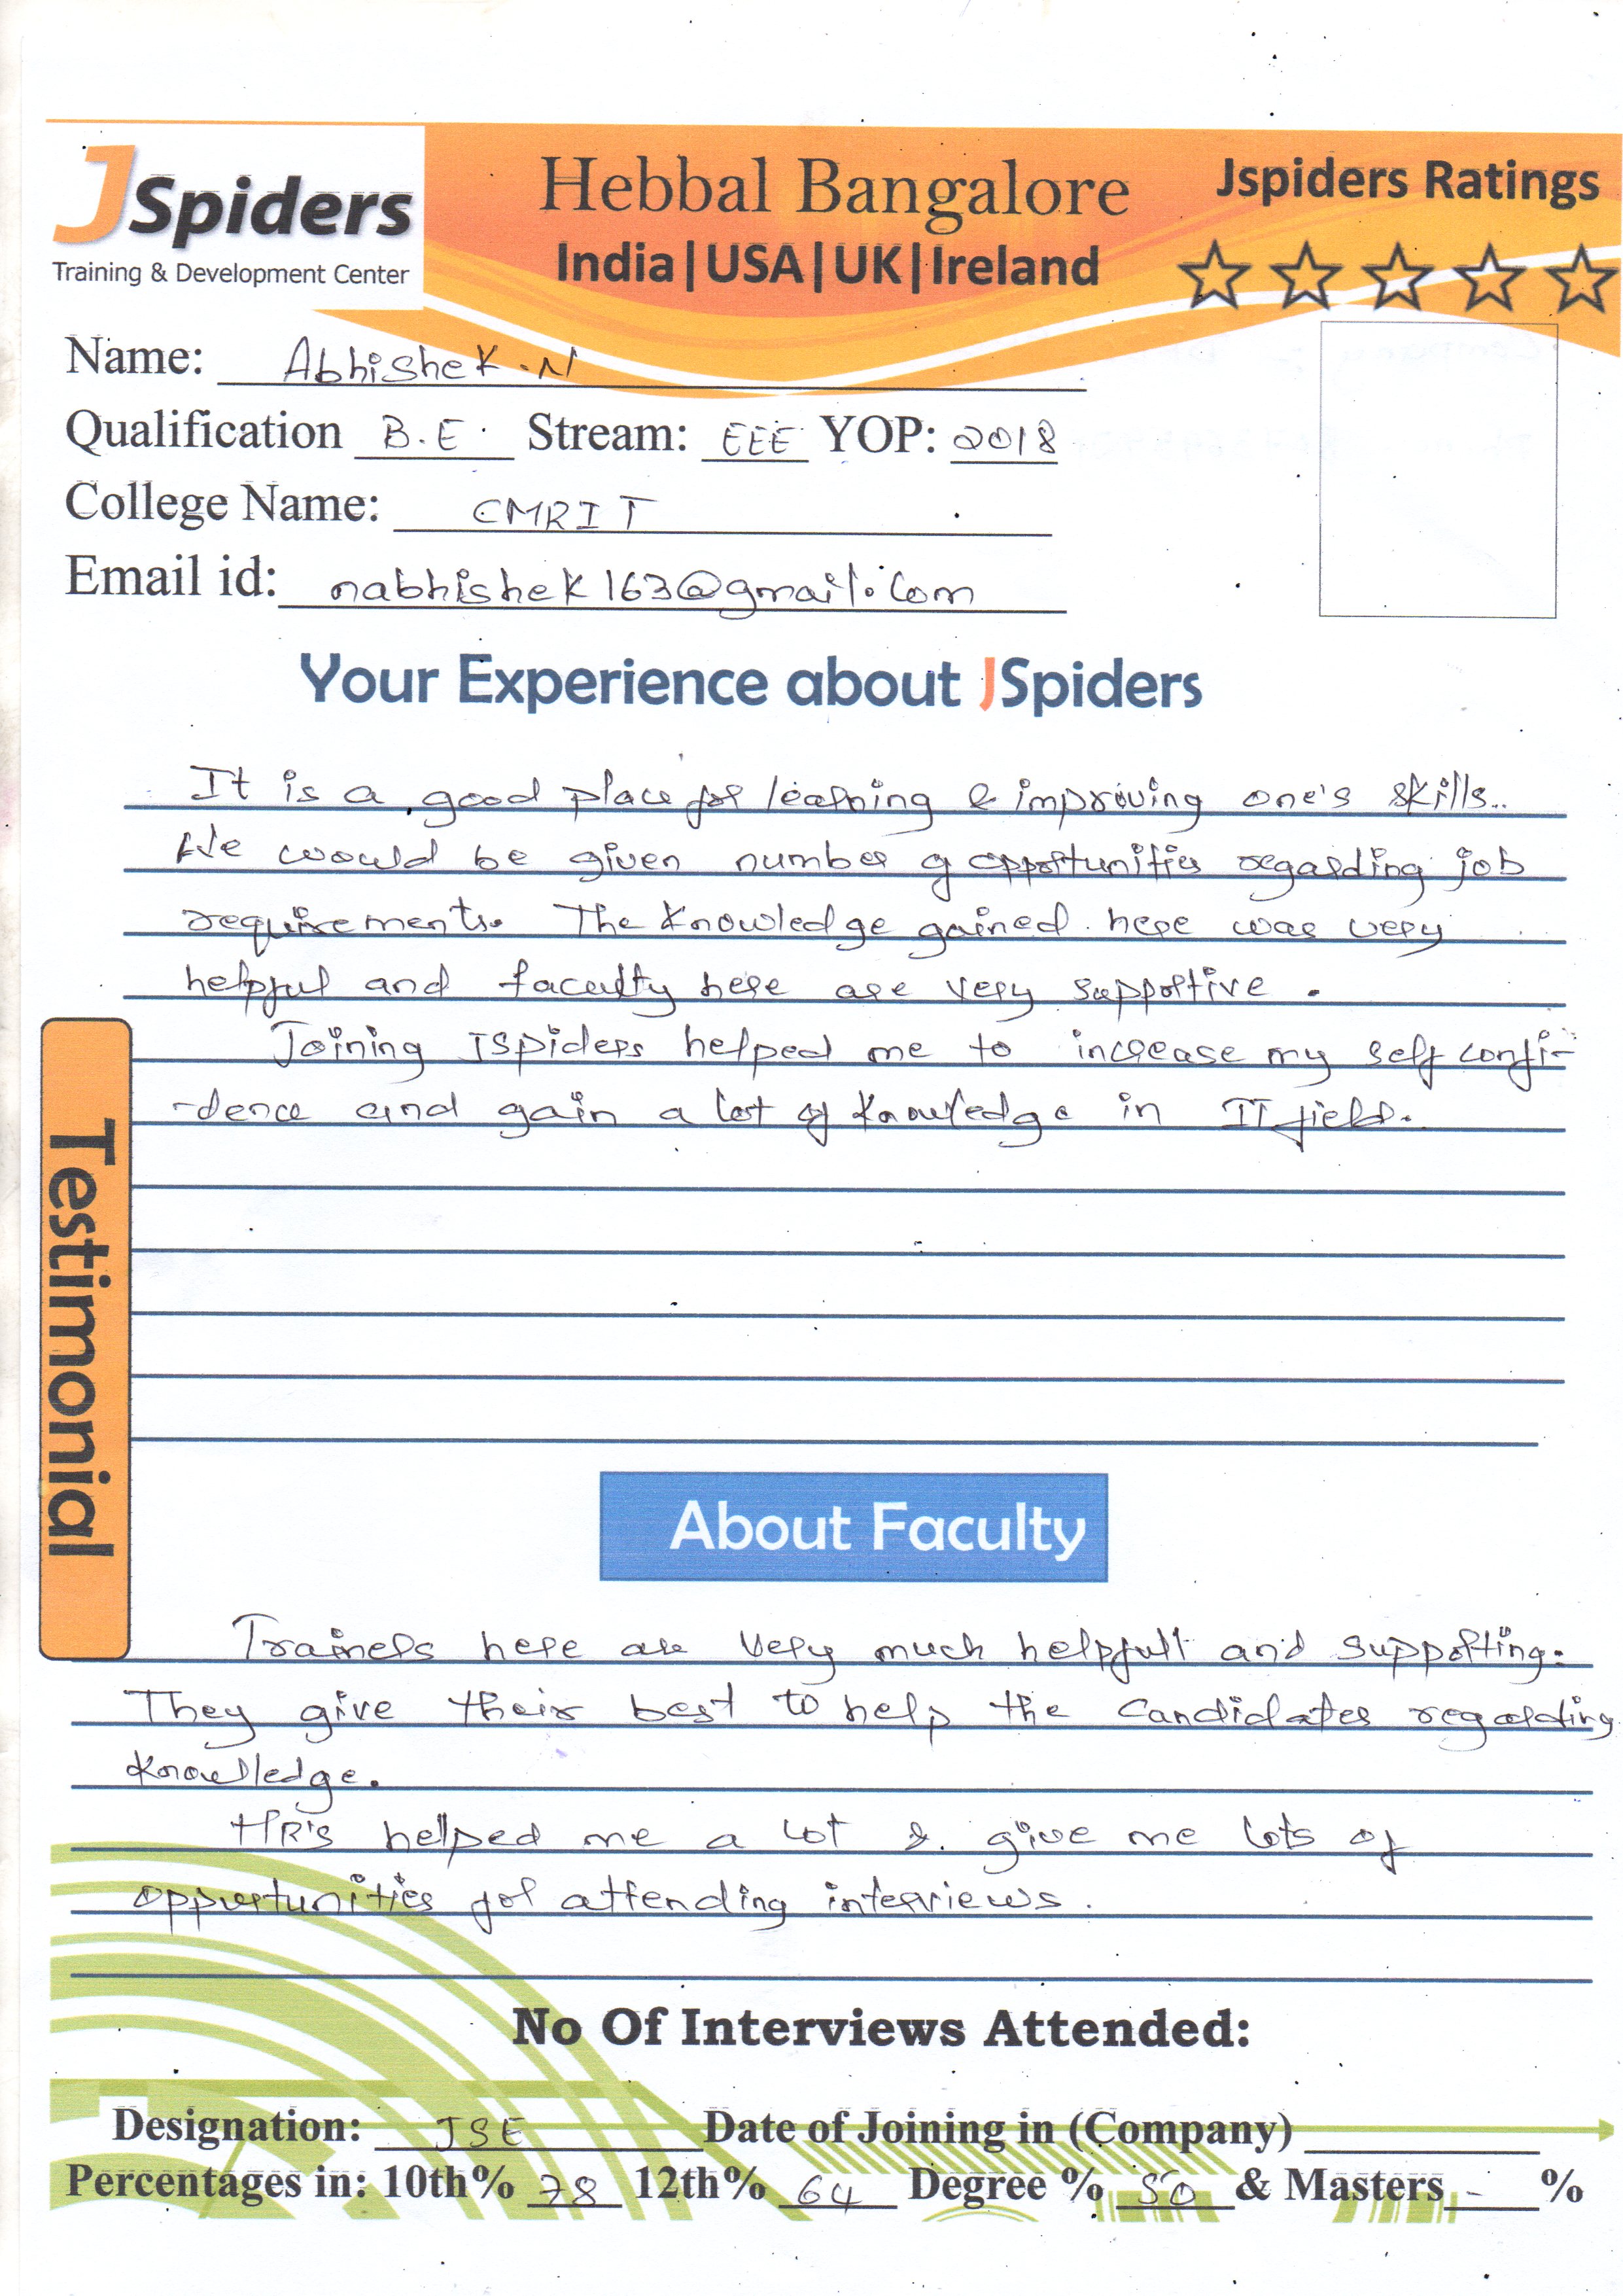 JSpiders
Training & Development Center
Hebbal Bangalore
India|USA|UK|Ireland
Jspiders Ratings
Name: Abhishek.N
Qualification B.E. Stream: EEE YOP: 2018
College Name: CMRIT
Email id: nabhishek163@gmail.com
Your Experience about JSpiders
It is a good place for learning & improving one's skills..
We would be given number of opportunities regarding job
requirements. The knowledge gained here was very
helpful and faculty here are very supportive.
Joining JSpiders helped me to increase my self confi-
-dence and gain a lot of knowledge in IT field.
Testimonial
About Faculty
Trainers here are very much helpfull and supporting.
They give their best to help the candidates regarding
knowledge.
HR's helped me a lot & give me lots of
oppurtunities for attending interviews.
No Of Interviews Attended:
Designation: JSE Date of Joining in (Company)
Percentages in: 10th% 78 12th% 64 Degree % 50 & Masters - %